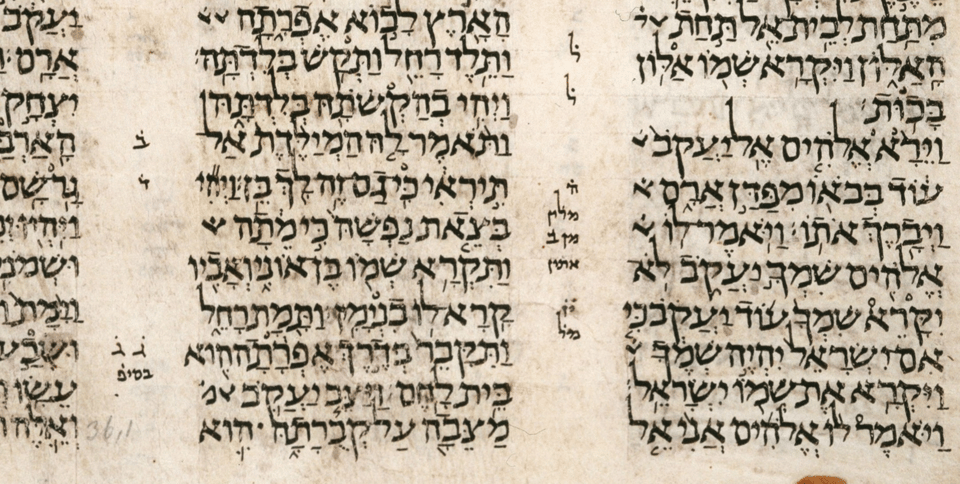 מִתַּחַת לְבֵית אֵל תַּחַת
הָאַלּוֹן וַיִּקְרָא שְׁמוֹ אַלּוֹן
בָּכוּת
וַיֵּרָא אֱלֹהִים אֶל יַעֲקֹב
עוֹד בְּבֹאוֹ מִפַּדַּן אֲרָם
וַיְבָרֶךְ אֹתוֹ וַיֹּאמֶר לוֹ
אֱלֹהִים שִׁמְךָ יַעֲקֹב לֹא
יִקָּרֵא שִׁמְךָ עוֹד יַעֲקֹב כִּי
אִם יִשְׂרָאֵל יִהְיֶה שְׁמֶךָ
וַיִּקְרָא אֶת שְׁמוֹ יִשְׂרָאֵל
וַיֹּאמֶר לוֹ אֱלֹהִים אֲנִי אֵל
ל
ל
הָאָרֶץ לָבוֹא אֶפְרָתָה
וַתֵּלֶד רָחֵל וַתְּקַשׁ בְּלִדְתָּהּ
וַיְהִי בְהַקְשֹׁתָהּ בְּלִדְתָּהּ
וַתֹּאמֶר לָהּ הַמְיַלֶּדֶת אַל
תִּירְאִי כִּי גַם זֶה לָךְ בֵּן וַיְהִי
בְּצֵאת נַפְשָׁהּ כִּי מֵתָה
וַתִּקְרָא שְׁמוֹ בֶּן אוֹנִי וְאָבִיו
קָרָא לוֹ בִנְיָמִין וַתָּמָת רָחֵל
וַתִּקָּבֵר בְּדֶרֶךְ אֶפְרָתָה הִוא
בֵּית לָחֶם וַיַּצֵּב יַעֲקֹב
מַצֵּבָה עַל קְבֻרָתָהּ הִוא
ב
ג ג
36,1
אֲרָם
יִצְחָק